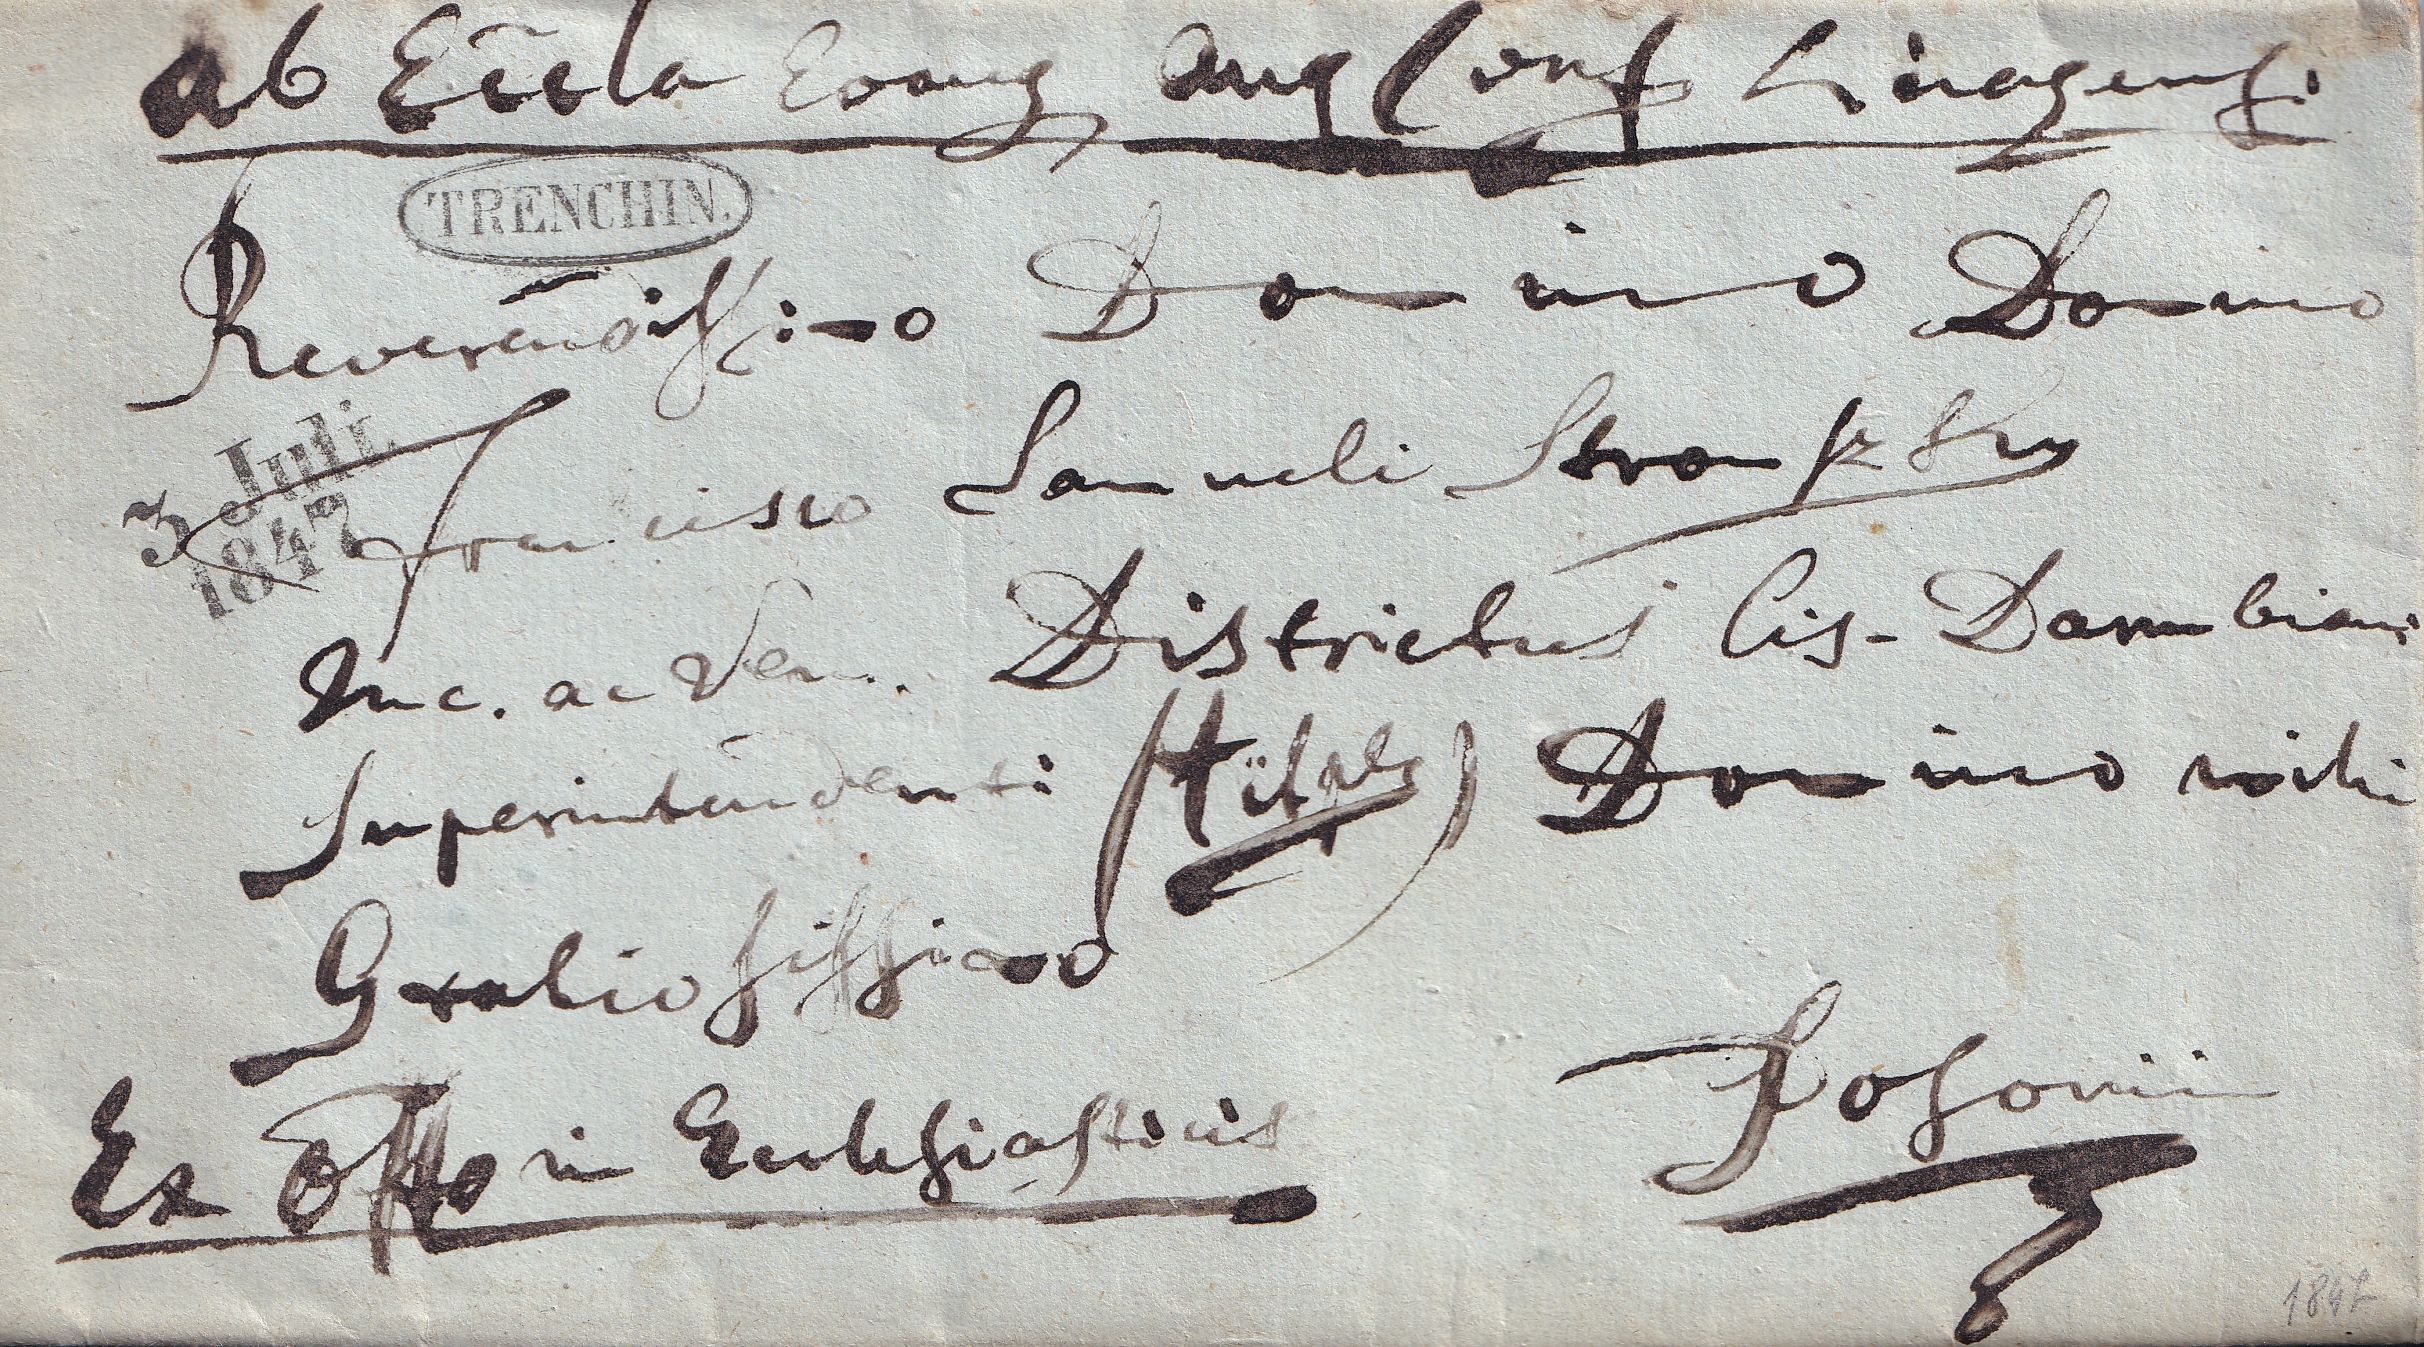 ab Eccla Evang Aug Conf
TRENCHIN.
Reverendissimo Domino Domino
3 Juli
1847
Francisco Samueli Stromszky
Inc. ac Ven. Districtus Cis-Danubiani
Superintendenti (titule) Domino mihi
Gratiosissimo
Posonii
Ex Offo in Ecclesiasticis
1847